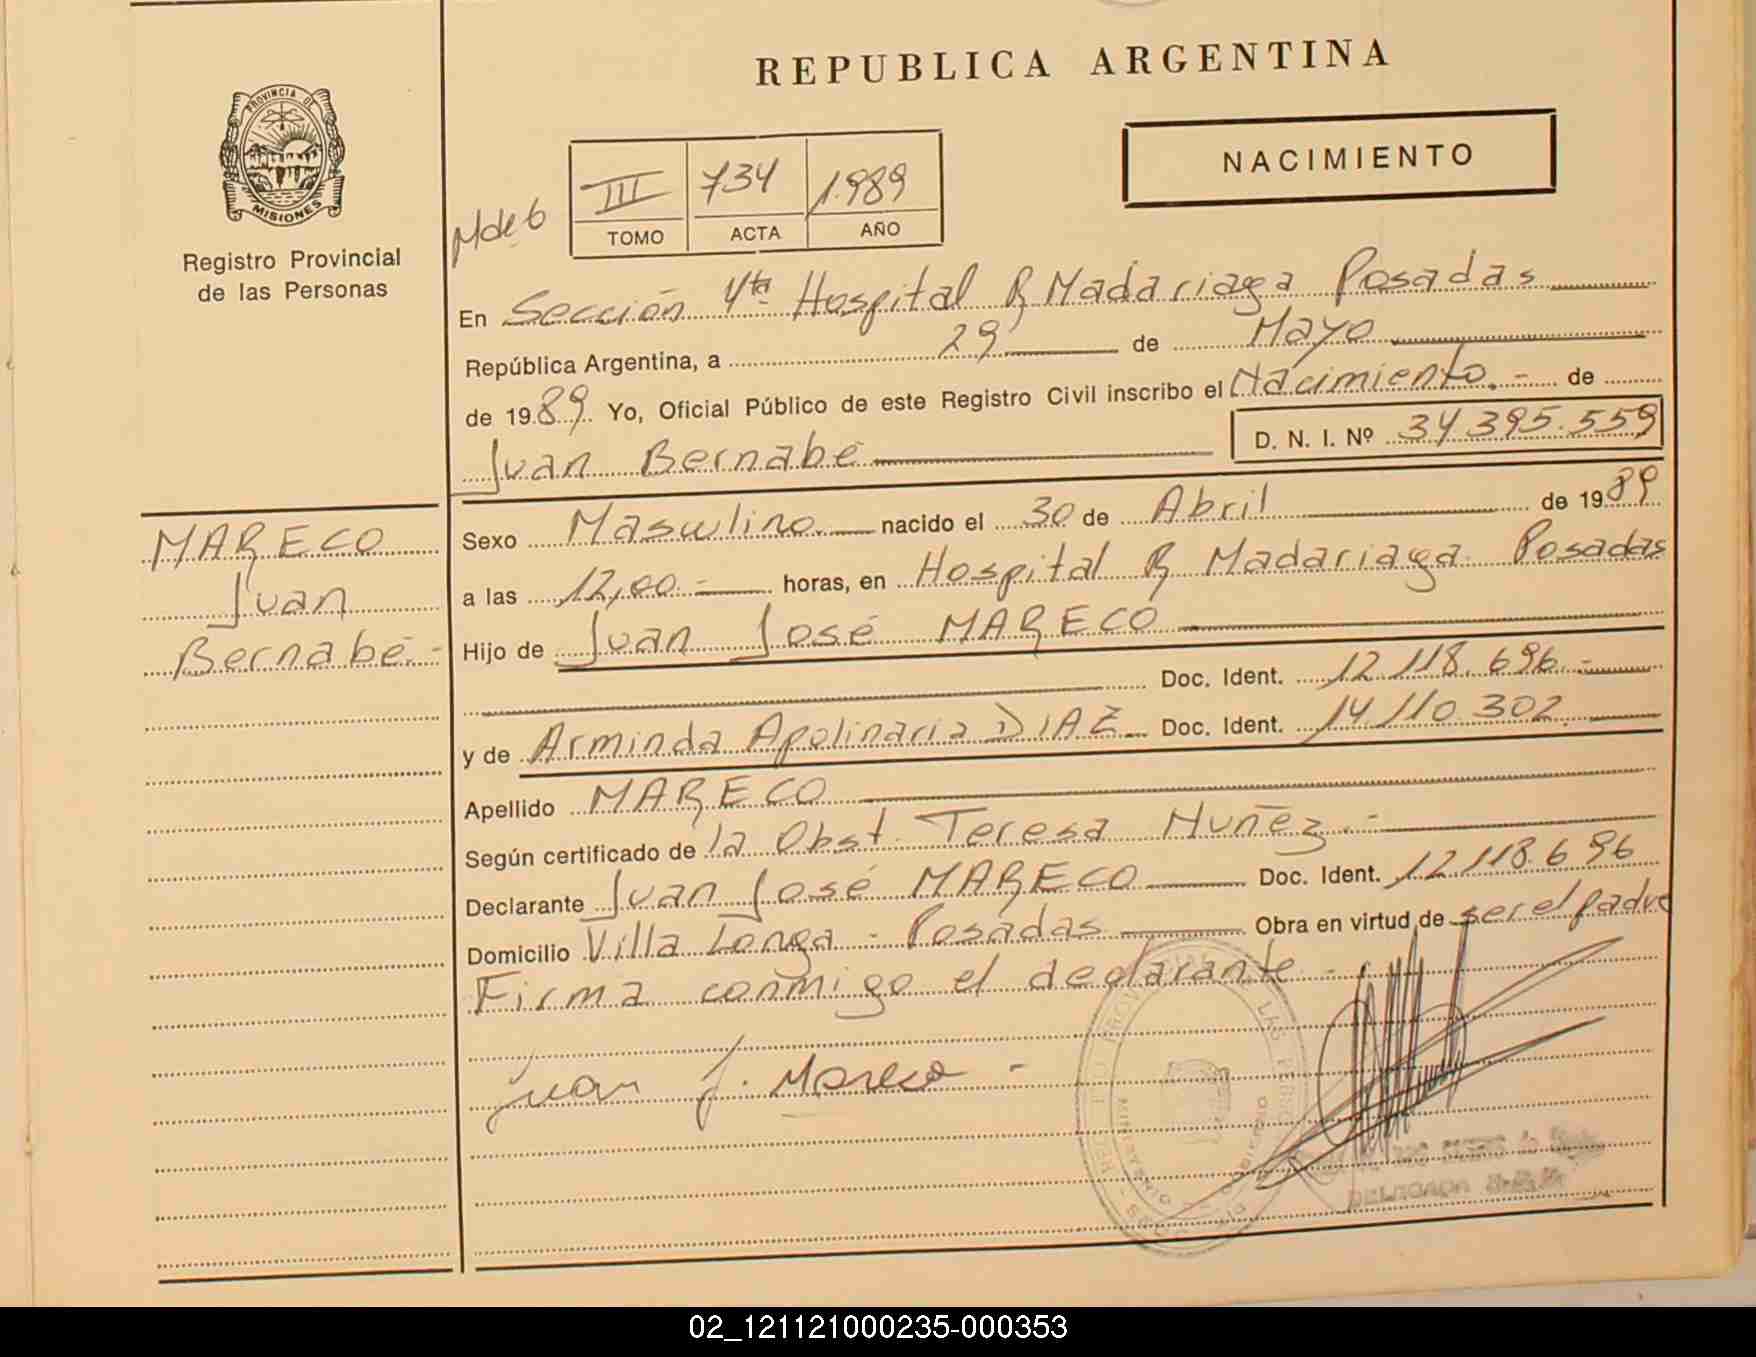 REPUBLICA ARGENTINA
PROVINCIA DE
MISIONES
Registro Provincial
de las Personas
NACIMIENTO
III 734 1.989
TOMO ACTA AÑO
En Sección 4ta Hospital R Madariaga Posadas
República Argentina, a 29 de Mayo
de 1989 Yo, Oficial Público de este Registro Civil inscribo el Nacimiento.- de
Juan Bernabé D. N. I. Nº 34 395.559
MARECO
Juan
Bernabé.-
Sexo Masculino. nacido el 30 de Abril de 1989
a las 12,00.- horas, en Hospital R Madariaga Posadas
Hijo de Juan José MARECO
Doc. Ident. 12.118.696.-
y de Arminda Apolinaria DIAZ Doc. Ident. 14.110.302.
Apellido MARECO
Según certificado de la Obst. Teresa Nuñez.-
Declarante Juan José MARECO Doc. Ident. 12.118.696
Domicilio Villa Longa - Posadas Obra en virtud de ser el padre
Firma conmigo el declarante.-
Juan J. Mareco -
DELEGADA
02_121121000235-000353